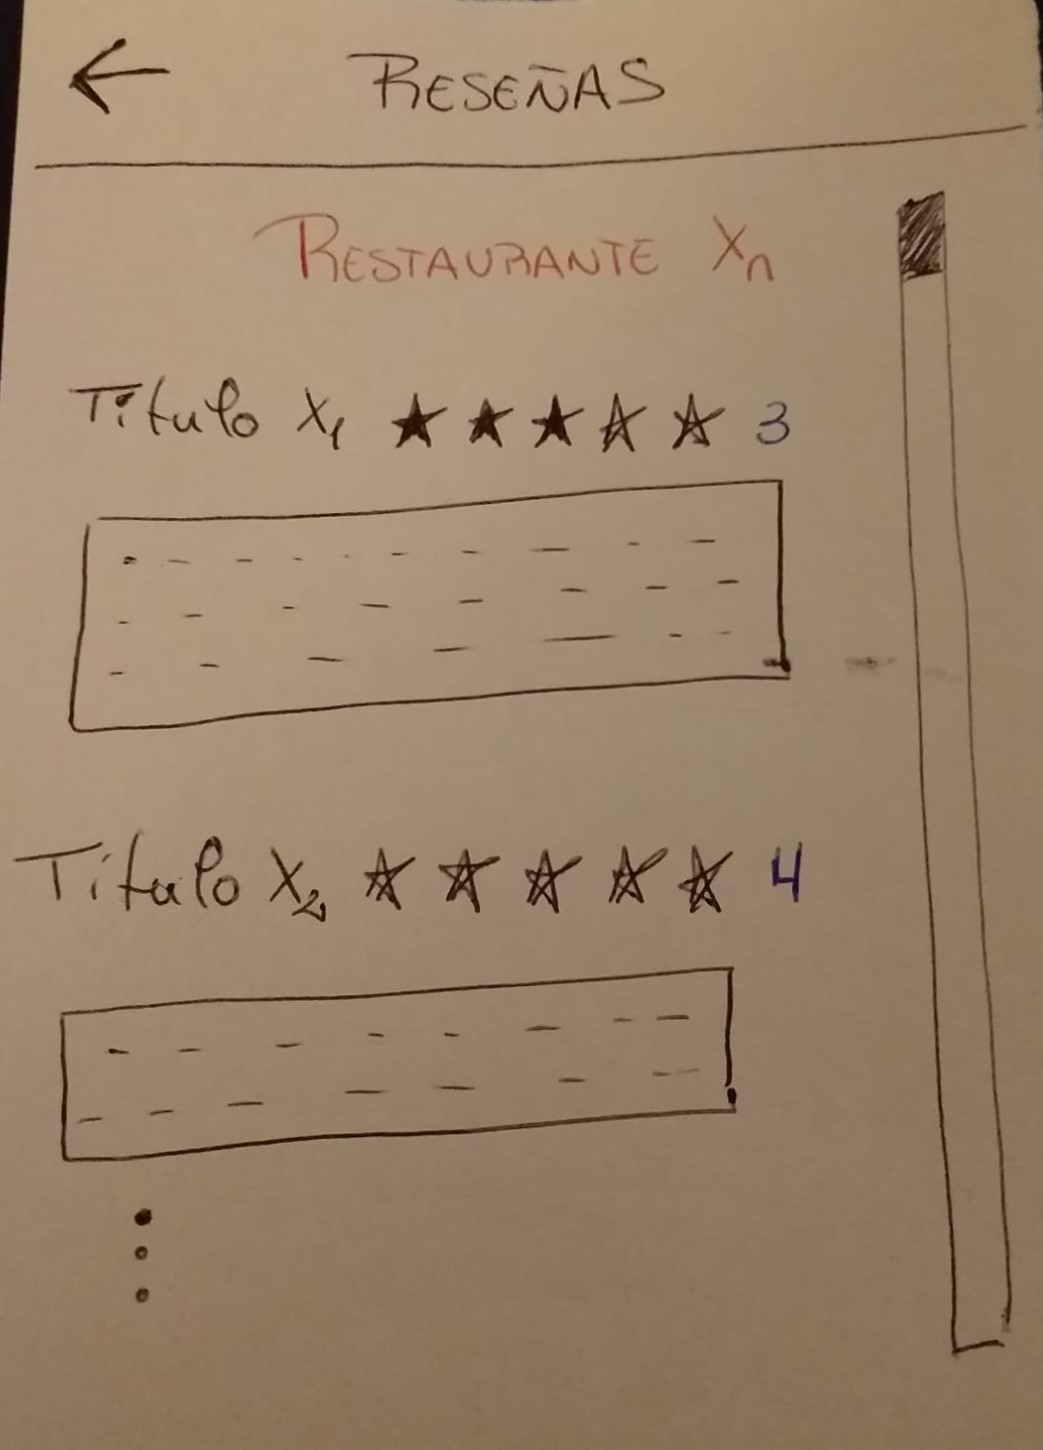 ← RESEÑAS
RESTAURANTE Xn
Título X1 ★ ★ ★ ☆ ☆ 3
Título X2 ☆ ☆ ☆ ☆ ☆ 4